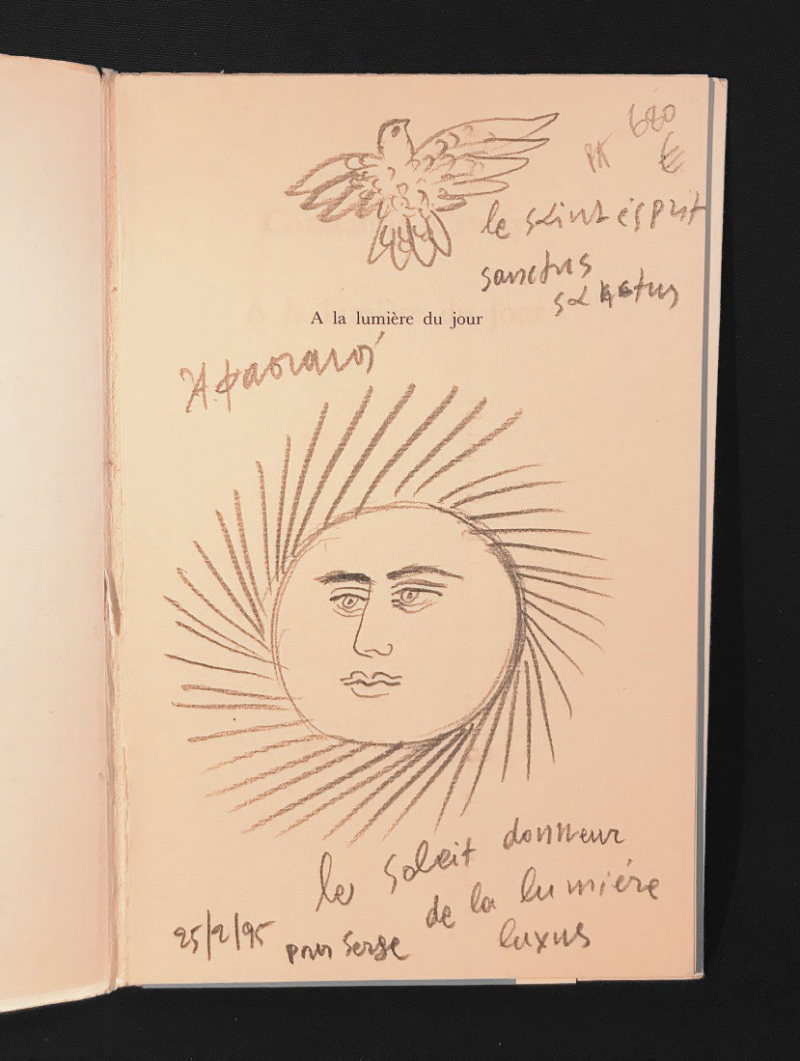 680
PK €
le saint ésprit
sanctus
sanctus
A la lumière du jour
le Soleit donneur
de la lumiére
luxus
25/2/95 pour Serge